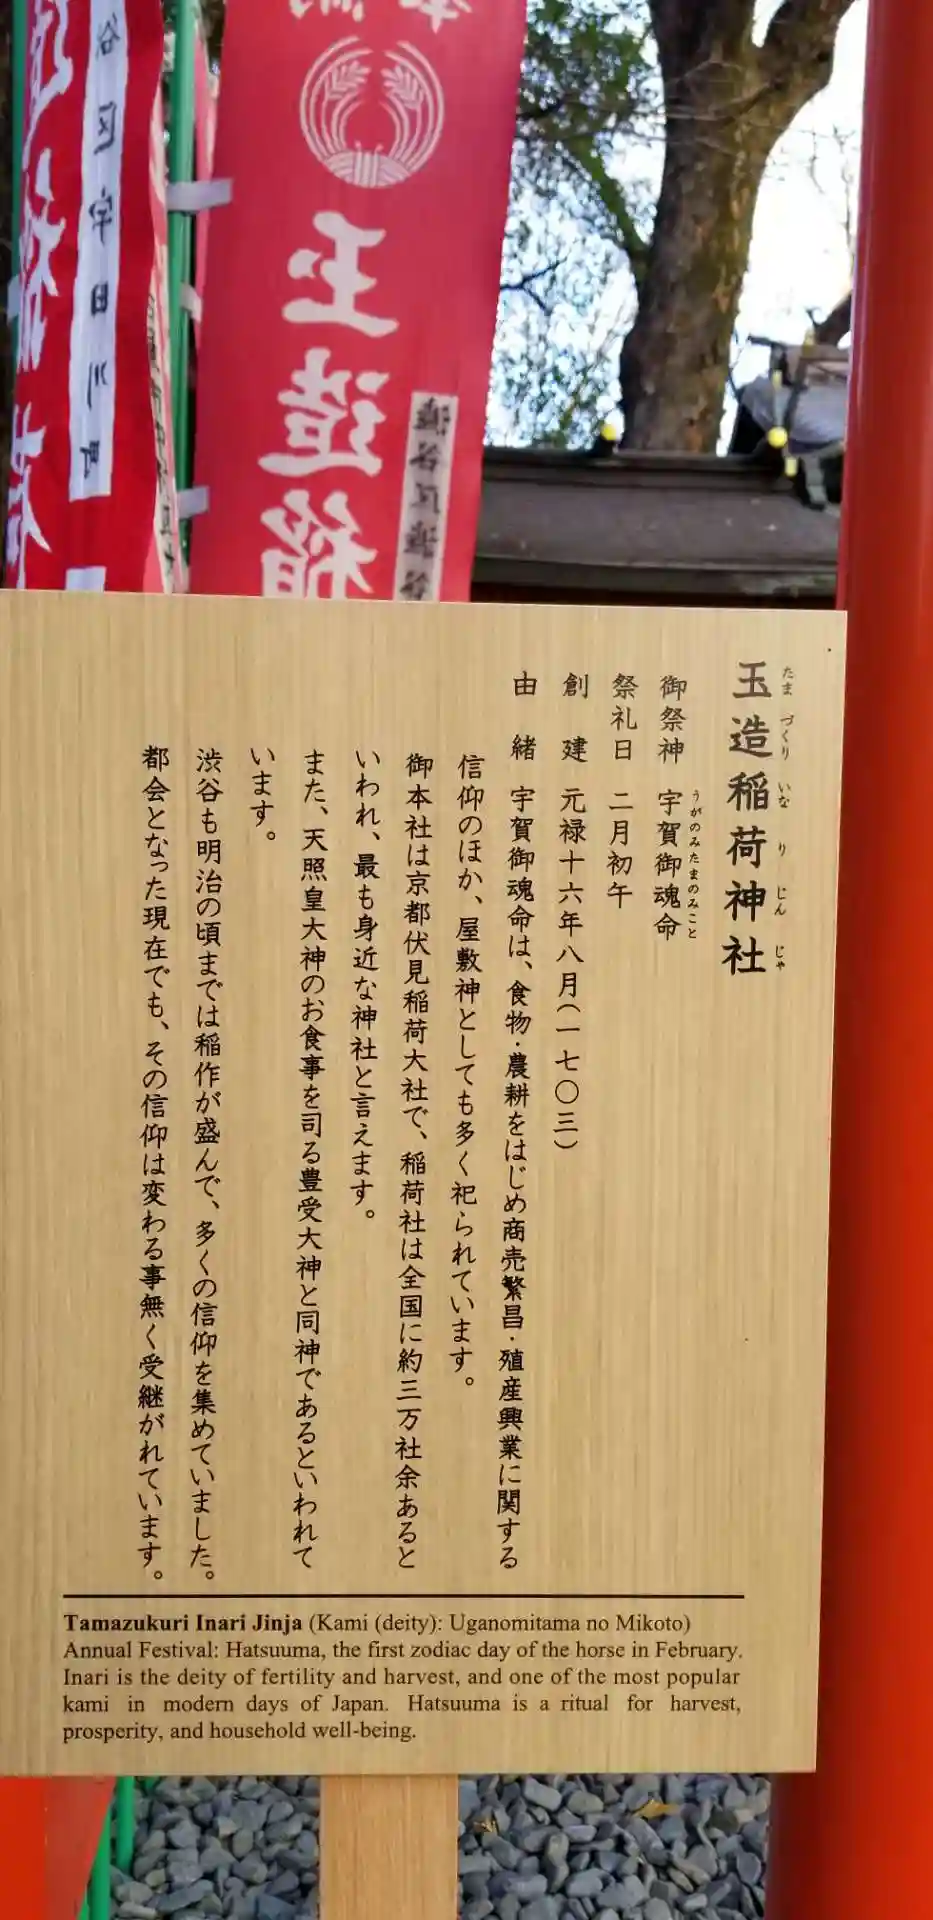 谷区宇田川町
玉造稲
渋谷区渋谷
玉造稲荷神社
たまづくりいなりじんじゃ
御祭神 宇賀御魂命
うがのみたまのみこと
祭礼日 二月初午
創建 元禄十六年八月(一七〇三)
由緒 宇賀御魂命は、食物・農耕をはじめ商売繁昌・殖産興業に関する
信仰のほか、屋敷神としても多く祀られています。
御本社は京都伏見稲荷大社で、稲荷社は全国に約三万社余あると
いわれ、最も身近な神社と言えます。
また、天照皇大神のお食事を司る豊受大神と同神であるといわれて
います。
渋谷も明治の頃までは稲作が盛んで、多くの信仰を集めていました。
都会となった現在でも、その信仰は変わる事無く受継がれています。
Tamazukuri Inari Jinja (Kami (deity): Uganomitama no Mikoto)
Annual Festival: Hatsuuma, the first zodiac day of the horse in February.
Inari is the deity of fertility and harvest, and one of the most popular
kami in modern days of Japan. Hatsuuma is a ritual for harvest,
prosperity, and household well-being.